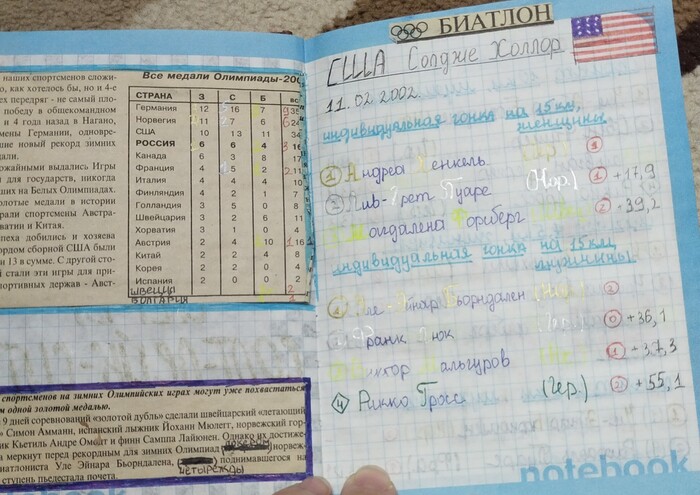 наших спортсменов сложи-
о, как хотелось бы, но и 4-е
ех передряг - не самый пло-
победу в общекомандном
и 4 года назад в Нагано,
мены Германии, одновре-
ше новый рекорд зимних
дали.
ержайными выдались Игры
для государств, никогда
ших на Белых Олимпиадах.
олотые медали в истории
рали спортсмены Австра-
рватии и Китая.
пеха добились и хозяева
ордом сборной США были
и 13 в сумме. С другой сто-
стали эти игры для при-
портивных держав - Авст-
Все медали Олимпиады-200
СТРАНА З С Б ВС
Германия 12 16 7 35
Норвегия 11 7 6 24
США 10 13 11 34
РОССИЯ 6 6 4 16
Канада 6 3 8 17
Франция 4 5 2 11
Италия 4 4 4
Финляндия 4 2 1 7
Голландия 3 5 0 8
Швейцария 3 2 6 11
Хорватия 3 1 0 4
Австрия 2 4 10 16
Китай 2 2 4 8
Корея 2 2 0 4
Испания 2 0 0 2
ШВЕЦИЯ 2
БОЛГАРИЯ 1
спортсменов на зимних Олимпийских играх могут уже похвастаться
м одной золотой медалью.
9 дней соревнований «золотой дубль» сделали швейцарский «летающий
» Симон Амманн, испанский лыжник Йоханн Мюлегг, норвежский гор-
к Кьетиль Андре Омодт и финн Сампа Лайюнен. Однако их достиже-
меркнут перед рекордным для зимних Олимпиад норвеж-
иатлониста Уле Эйнара Бьорндалена, поднимавшегося на
ЧЕТЫРЕЖДЫ
ступень пьедестала почета.
БИАТЛОН
США Солдже Холлор
11.02.2002.
индивидуальная гонка на 15 км,
женщины.
1 Андреа Хенкель. 1
2 Лив-Грет Пуаре (Нор.) 1 +17,9
Магдалена Форсберг 2 -39,2
индивидуальная гонка на 15 км,
мужчины.
Уле-Эйнар Бьорндален 2
Франк Люк 0 +36,1
Виктор Майгуров 1 +37,3
4 Рикко Гросс (Гер.) 2 +55,1
notebook